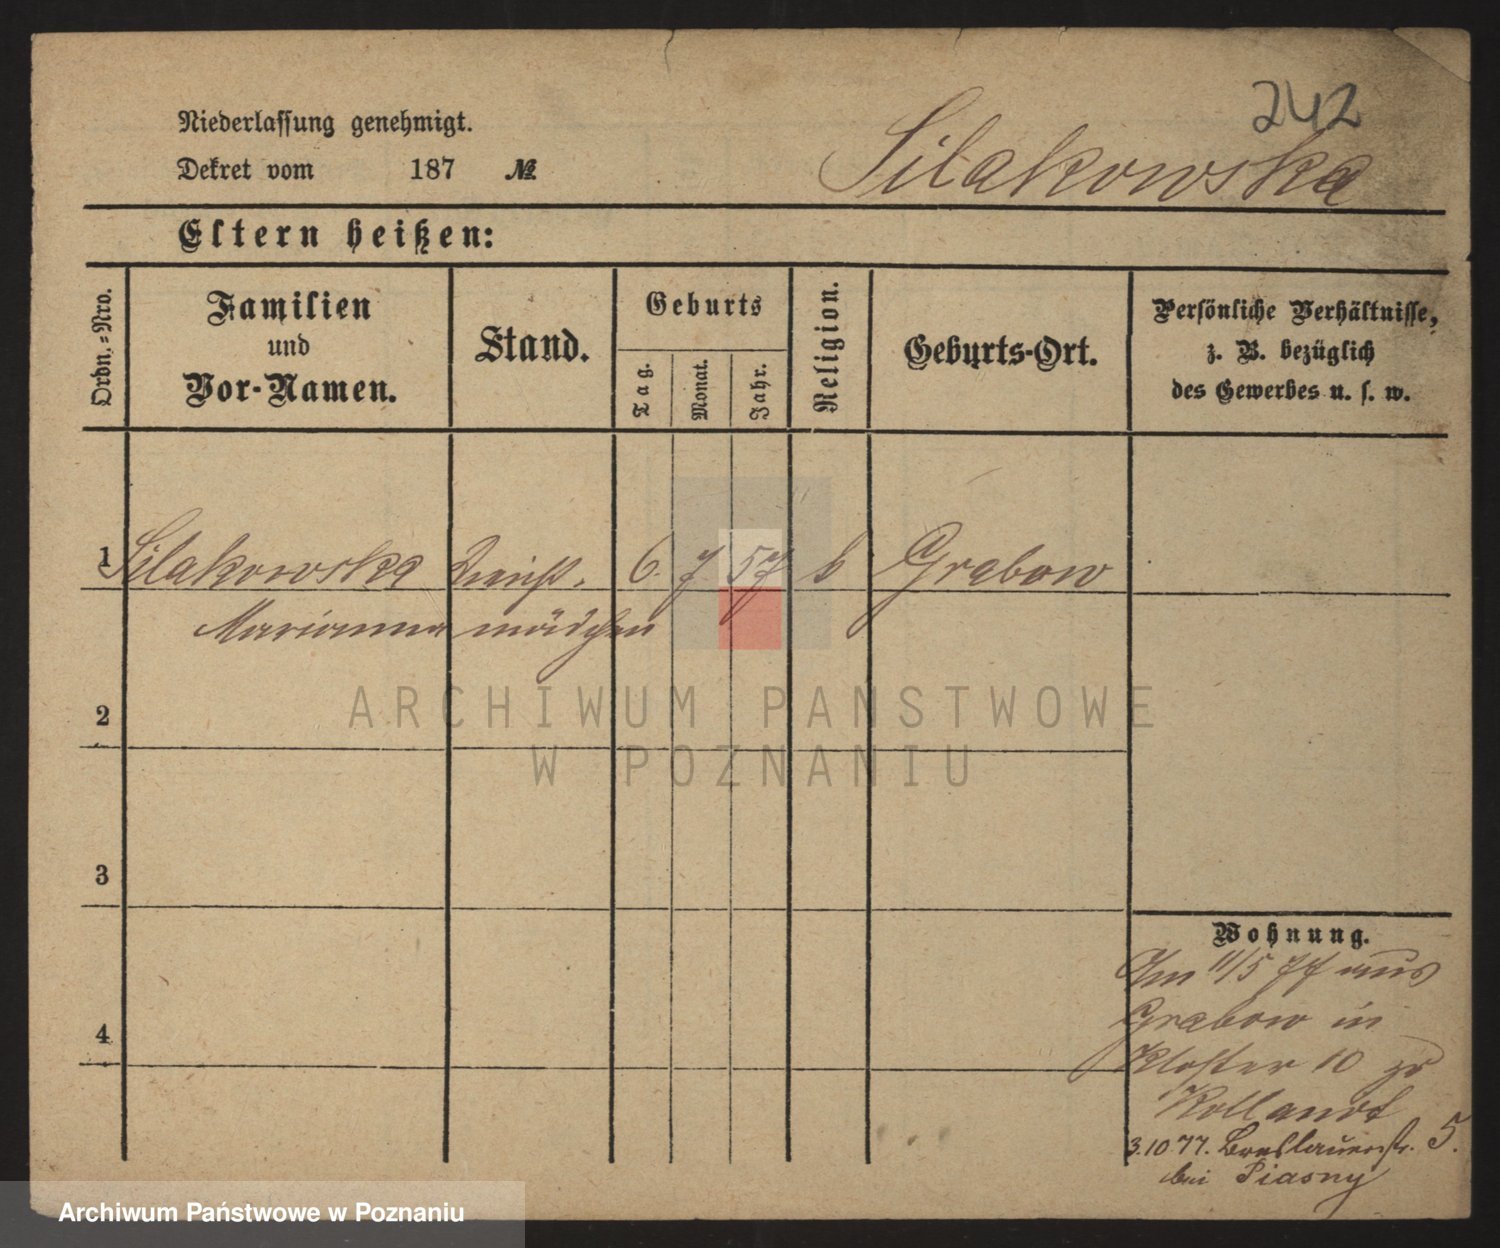 242
Niederlassung genehmigt.
Silakowska
Dekret vom 187 №
Eltern heißen:
Ordn.-Nro.
Familien
und
Vor-Namen.
Stand.
Geburts
Tag.
Monat.
Jahr.
Religion.
Geburts-Ort.
Persönliche Verhältnisse,
z. B. bezüglich
des Gewerbes u. s. w.
1 Silakowska Dienst- 6. 7 57 k Grabow
Marianna mädchen
2
3
4
Wohnung.
Am 11/5 77 aus
Grabow in
Kloster 10 zu
Kollandt
3.10 77. Breslauerstr. 5.
bei Piasny
ARCHIWUM PAŃSTWOWE
W POZNANIU
Archiwum Państwowe w Poznaniu